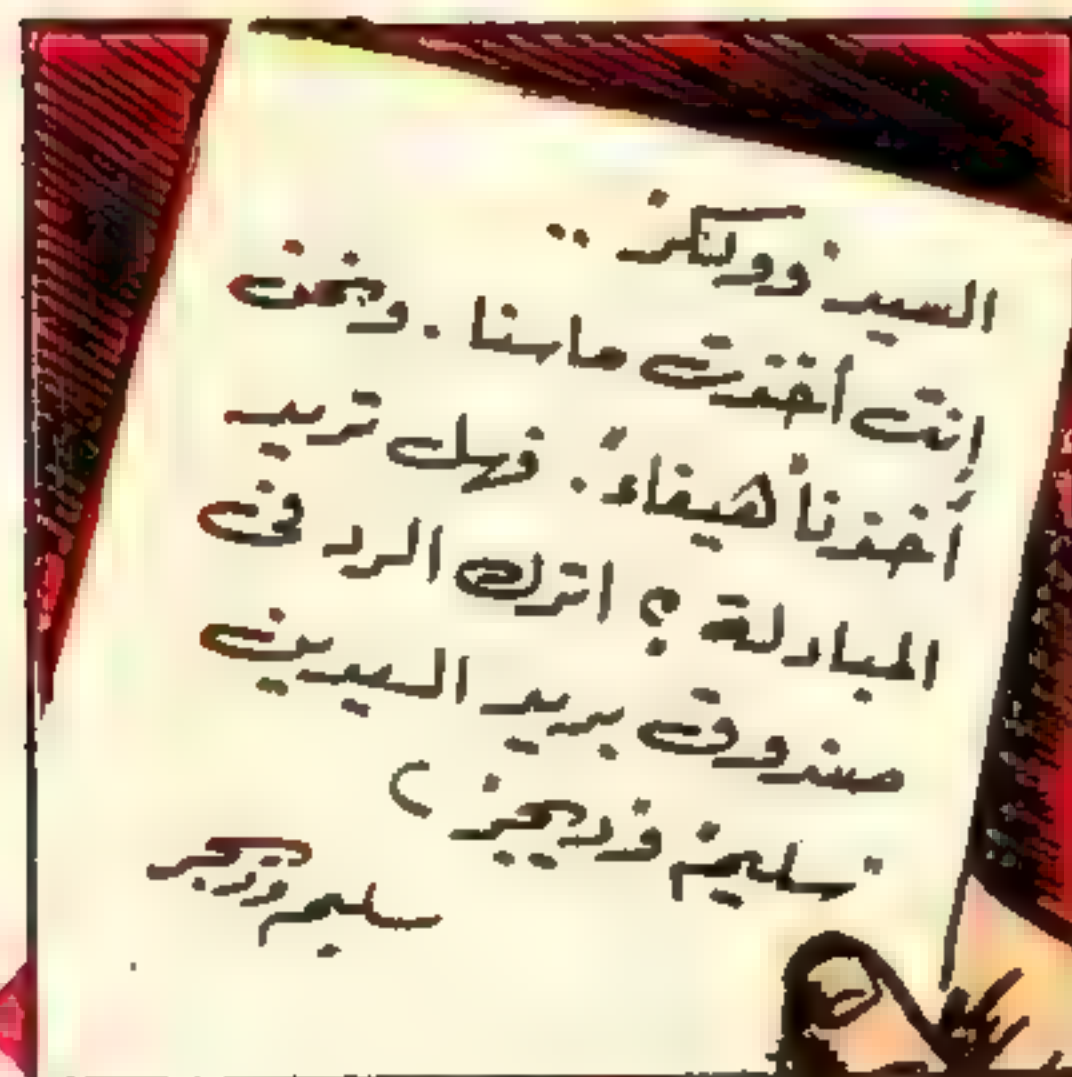 السيد وولتكنز ..
إنت أخذت ماسنا . ونحن
أخذنا هيفاء . فهل تريد
المبادلة ؟ اترك الرد في
صندوق بريد السيدين
سليم وزديجيز
سليم وزديجر